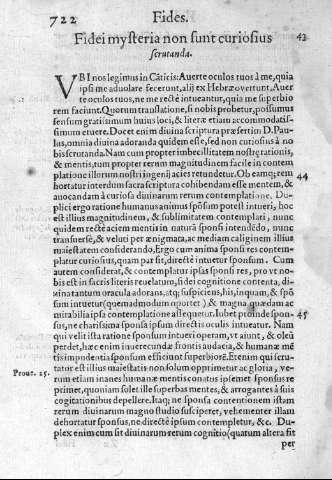 722
Fides.
Fidei mysteria non sunt curiosius
scrutanda.
43
VBI nos legimus in Cāticis: Auerte oculos tuos à me, quia
ipsi me aduolare fecerunt, alij ex Hebræo vertunt. Auer
te oculos tuos, ne me rectè intueantur, quia me superbio
rem faciunt. Quorum translatione, si nobis probetur, possumus
sensum gratissimum huius loci, & literæ etiam accommodatis-
simum eruere. Docet enim diuina scriptura præsertim D. Pau-
lus, omnia diuina adoranda quidem esse, sed non curiosius à no
bis scrutanda. Nam cum propter imbecillitatem nostræ rationis,
& mentis, tum propter rerum magnitudinem facile in contem
platione illorum nostri ingenij acies retundetur. Ob eamq; rem
44
hortatur interdum sacra scriptura cohibendam esse mentem, &
auocandam à curiosa diuinarum rerum contemplatione. Du-
plici ergo ratione humanus animus spōsum potest intueri, hoc
est illius magnitudinem, & sublimitatem contemplari, nunc
quidem rectè aciem mentis in naturā sponsi intendēdo, nunc
transuersè, & veluti per ænigmata, ac mediam caliginem illius
maiestatem considerando. Ergo cum anima sponsi res contem-
platur curiosius, quam par sit, directè intuetur sponsum. Cum
autem considerat, & contemplatur ipsas sponsi res, pro vt no-
bis est in sacris literis reuelatum, fidei cognitione contenta, di-
uina tantum oracula adorans, atq; suspiciens, his, inquam, & spō
sum intuetur (quemadmodum oportet) & magna quædam ac
mirabilia ipsa contemplatione assequetur. Iubet proinde spon-
45
sus, ne charissima sponsa ipsum directis oculis intueatur. Nam
qui velit ista ratione sponsum intueri operam, vt aiunt, & oleū
perdet, hæc enim inuerecundæ frontis audacia, & humanæ mē
tis impudentia sponsum efficiunt superbiorē. Etenim qui scru-
Prou. 25.
tator est illius maiestatis non solum opprimetur ac gloria, ve-
rum etiam inanes humanæ mentis conatus ipsemet sponsus re
primet, quoniam solet ille superbas mentes, & arrogantes à suis
cogitationibus depellere. Itaq; ne sponsa contentionem istam
rerum diuinarum magno studio susciperet, vehementer illam
dehortatur sponsus, ne directè ipsum contempletur, &c. Du-
plex enim cum sit diuinarum rerum cognitio (quatum altera fit
per